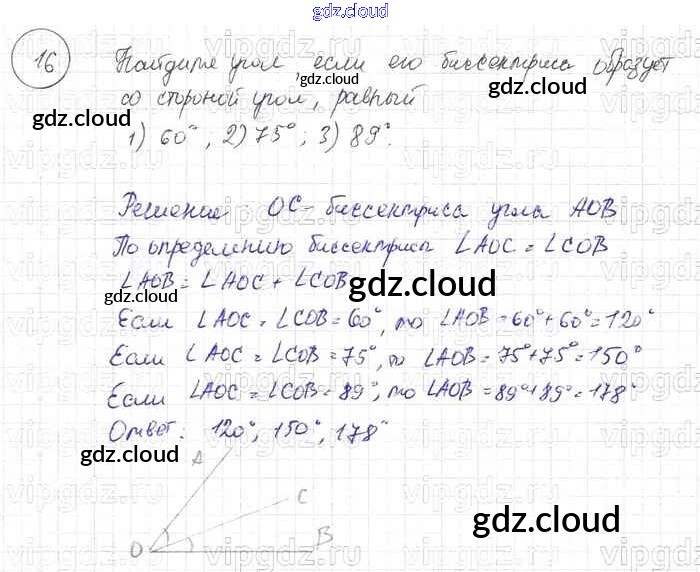 gdz.cloud
16 Найдите угол, если его биссектриса образует
со стороной угол, равный
1) 60°, 2) 75°; 3) 89°.
Решение OC - биссектриса угла AOB
По определению биссектрисы ∠AOC = ∠COB
∠AOB = ∠AOC + ∠COB
Если ∠AOC = ∠COB = 60°, то ∠AOB = 60° + 60° = 120°
Если ∠AOC = ∠COB = 75°, то ∠AOB = 75° + 75° = 150°
Если ∠AOC = ∠COB = 89°, то ∠AOB = 89° + 89° = 178°
Ответ: 120°, 150°, 178°
A
C
O B
gdz.cloud
gdz.cloud
gdz.cloud
gdz.cloud
gdz.cloud
gdz.cloud
gdz.cloud
gdz.cloud
gdz.cloud
gdz.cloud